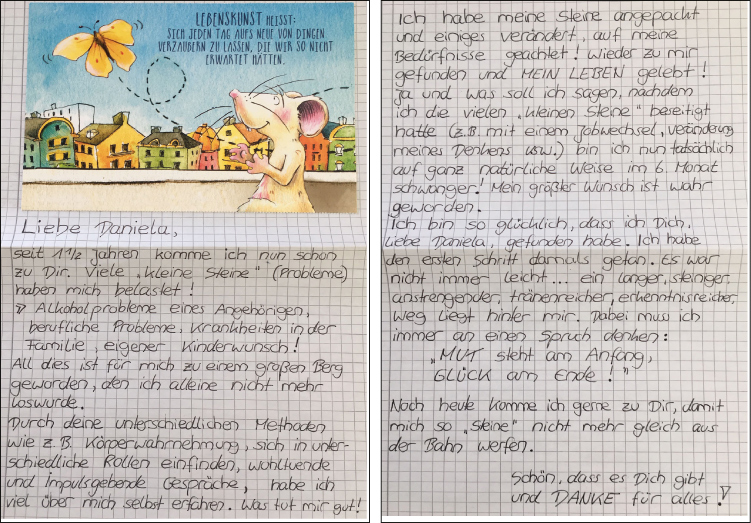 LEBENSKUNST HEISST:
SICH JEDEN TAG AUFS NEUE VON DINGEN
VERZAUBERN ZU LASSEN, DIE WIR SO NICHT
ERWARTET HÄTTEN.
Liebe Daniela,
seit 1 1/2 Jahren komme ich nun schon
zu Dir. Viele „kleine Steine" (Probleme)
haben mich belastet!
Alkoholprobleme eines Angehörigen,
berufliche Probleme, Krankheiten in der
Familie, eigener Kinderwunsch!
All dies ist für mich zu einem großen Berg
geworden, den ich alleine nicht mehr
loswurde.
Durch deine unterschiedlichen Methoden
wie z.B. Körperwahrnehmung, sich in unter-
schiedliche Rollen einfinden, wohltuende
und impulsgebende Gespräche, habe ich
viel über mich selbst erfahren. Was tut mir gut!
Ich habe meine Steine angepackt
und einiges verändert, auf meine
Bedürfnisse geachtet! Wieder zu mir
gefunden und MEIN LEBEN gelebt!
Ja und was soll ich sagen, nachdem
ich die vielen „kleinen Steine" beseitigt
hatte (z.B. mit einem Jobwechsel, Veränderung
meines Denkens usw.) bin ich nun tatsächlich
auf ganz natürliche Weise im 6. Monat
schwanger! Mein größter Wunsch ist wahr
geworden.
Ich bin so glücklich, dass ich Dich,
liebe Daniela, gefunden habe. Ich habe
den ersten Schritt damals getan. Es war
nicht immer leicht... ein langer, steiniger,
anstrengender, tränenreicher, erkenntnisreicher
Weg liegt hinter mir. Dabei muss ich
immer an einen Spruch denken:
„MUT steht am Anfang,
GLÜCK am Ende!"
Noch heute komme ich gerne zu Dir, damit
mich so „Steine" nicht mehr gleich aus
der Bahn werfen.
Schön, dass es Dich gibt
und DANKE für alles!